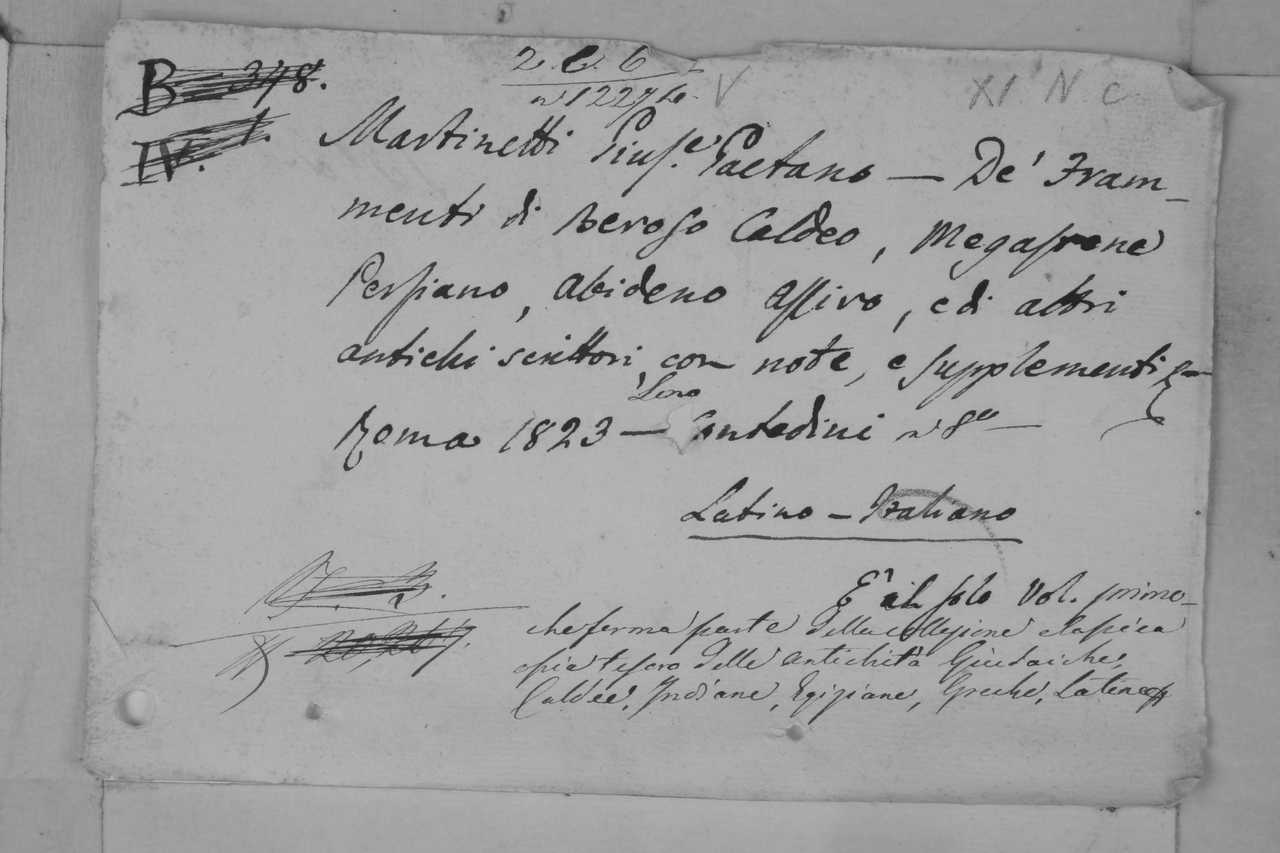 B 348.
2. C. 6
V
XI N. C.
IV. 1.
Martinetti Giuſ.e Gaetano — De' Fram-
menti di Beroſo Caldeo, Megaſtene
Perſiano, Abideno Aſſiro, e di altri
antichi scrittori, con note, e ſupplementi
Roma 1823 — Contedini in 8°
Latino - Italiano
E' il ſolo Vol. primo
che forma parte della collezione claſsica
oſsia teſoro delle antichità Giudaiche,
Caldee, Indiane, Egiziane, Greche, Latine